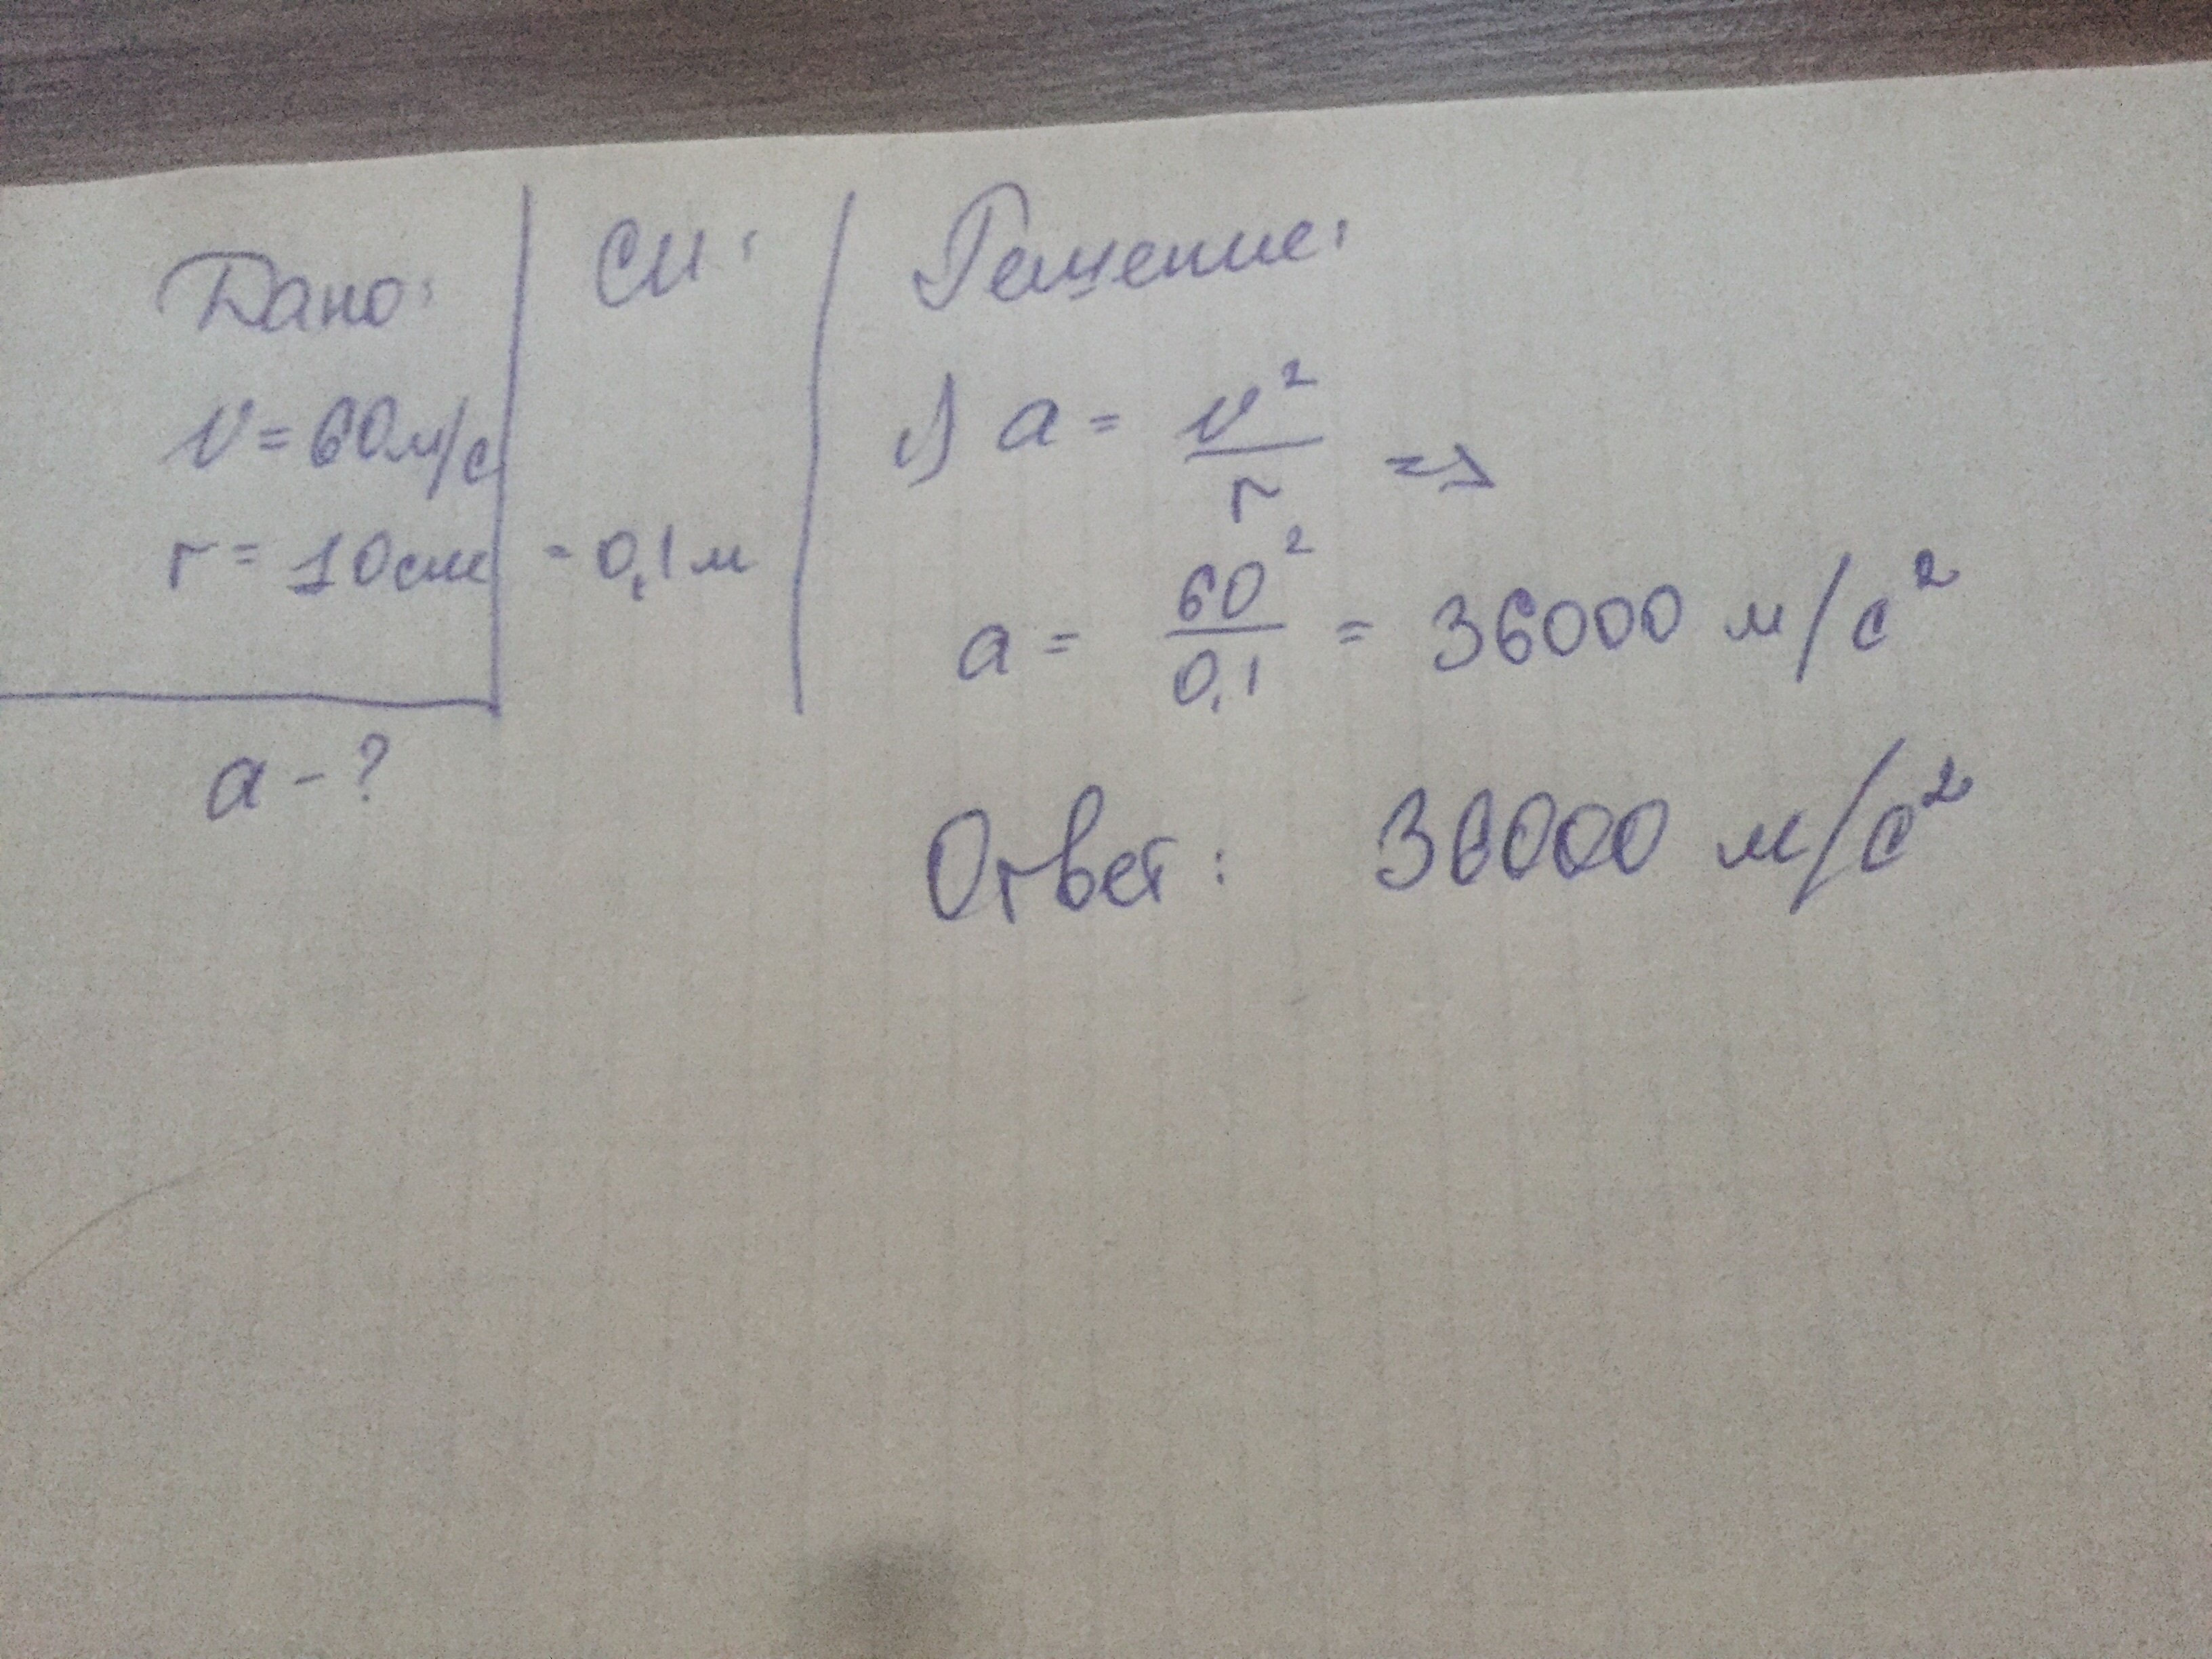 Дано:
v = 60 м/с
r = 10 см
a - ?
СИ:
= 0,1 м
Решение:
1) a = v² / r =>
a = 60² / 0,1 = 36000 м/с²
Ответ: 36000 м/с²